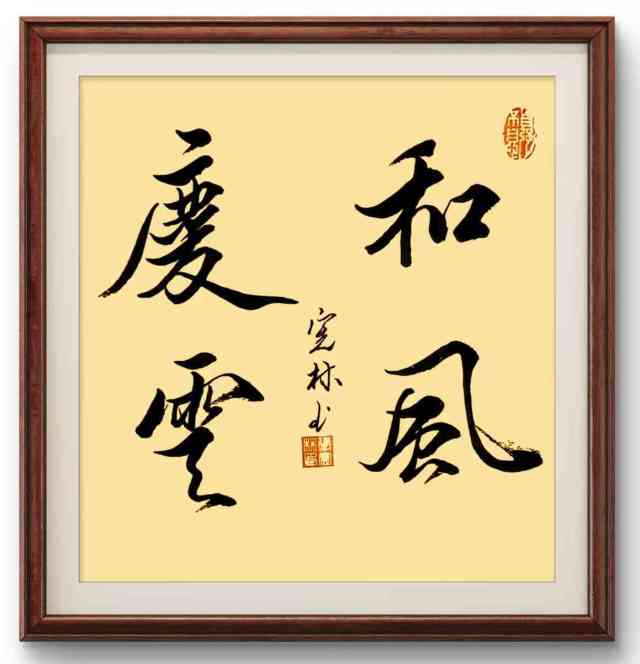 和風
慶雲
宽林书